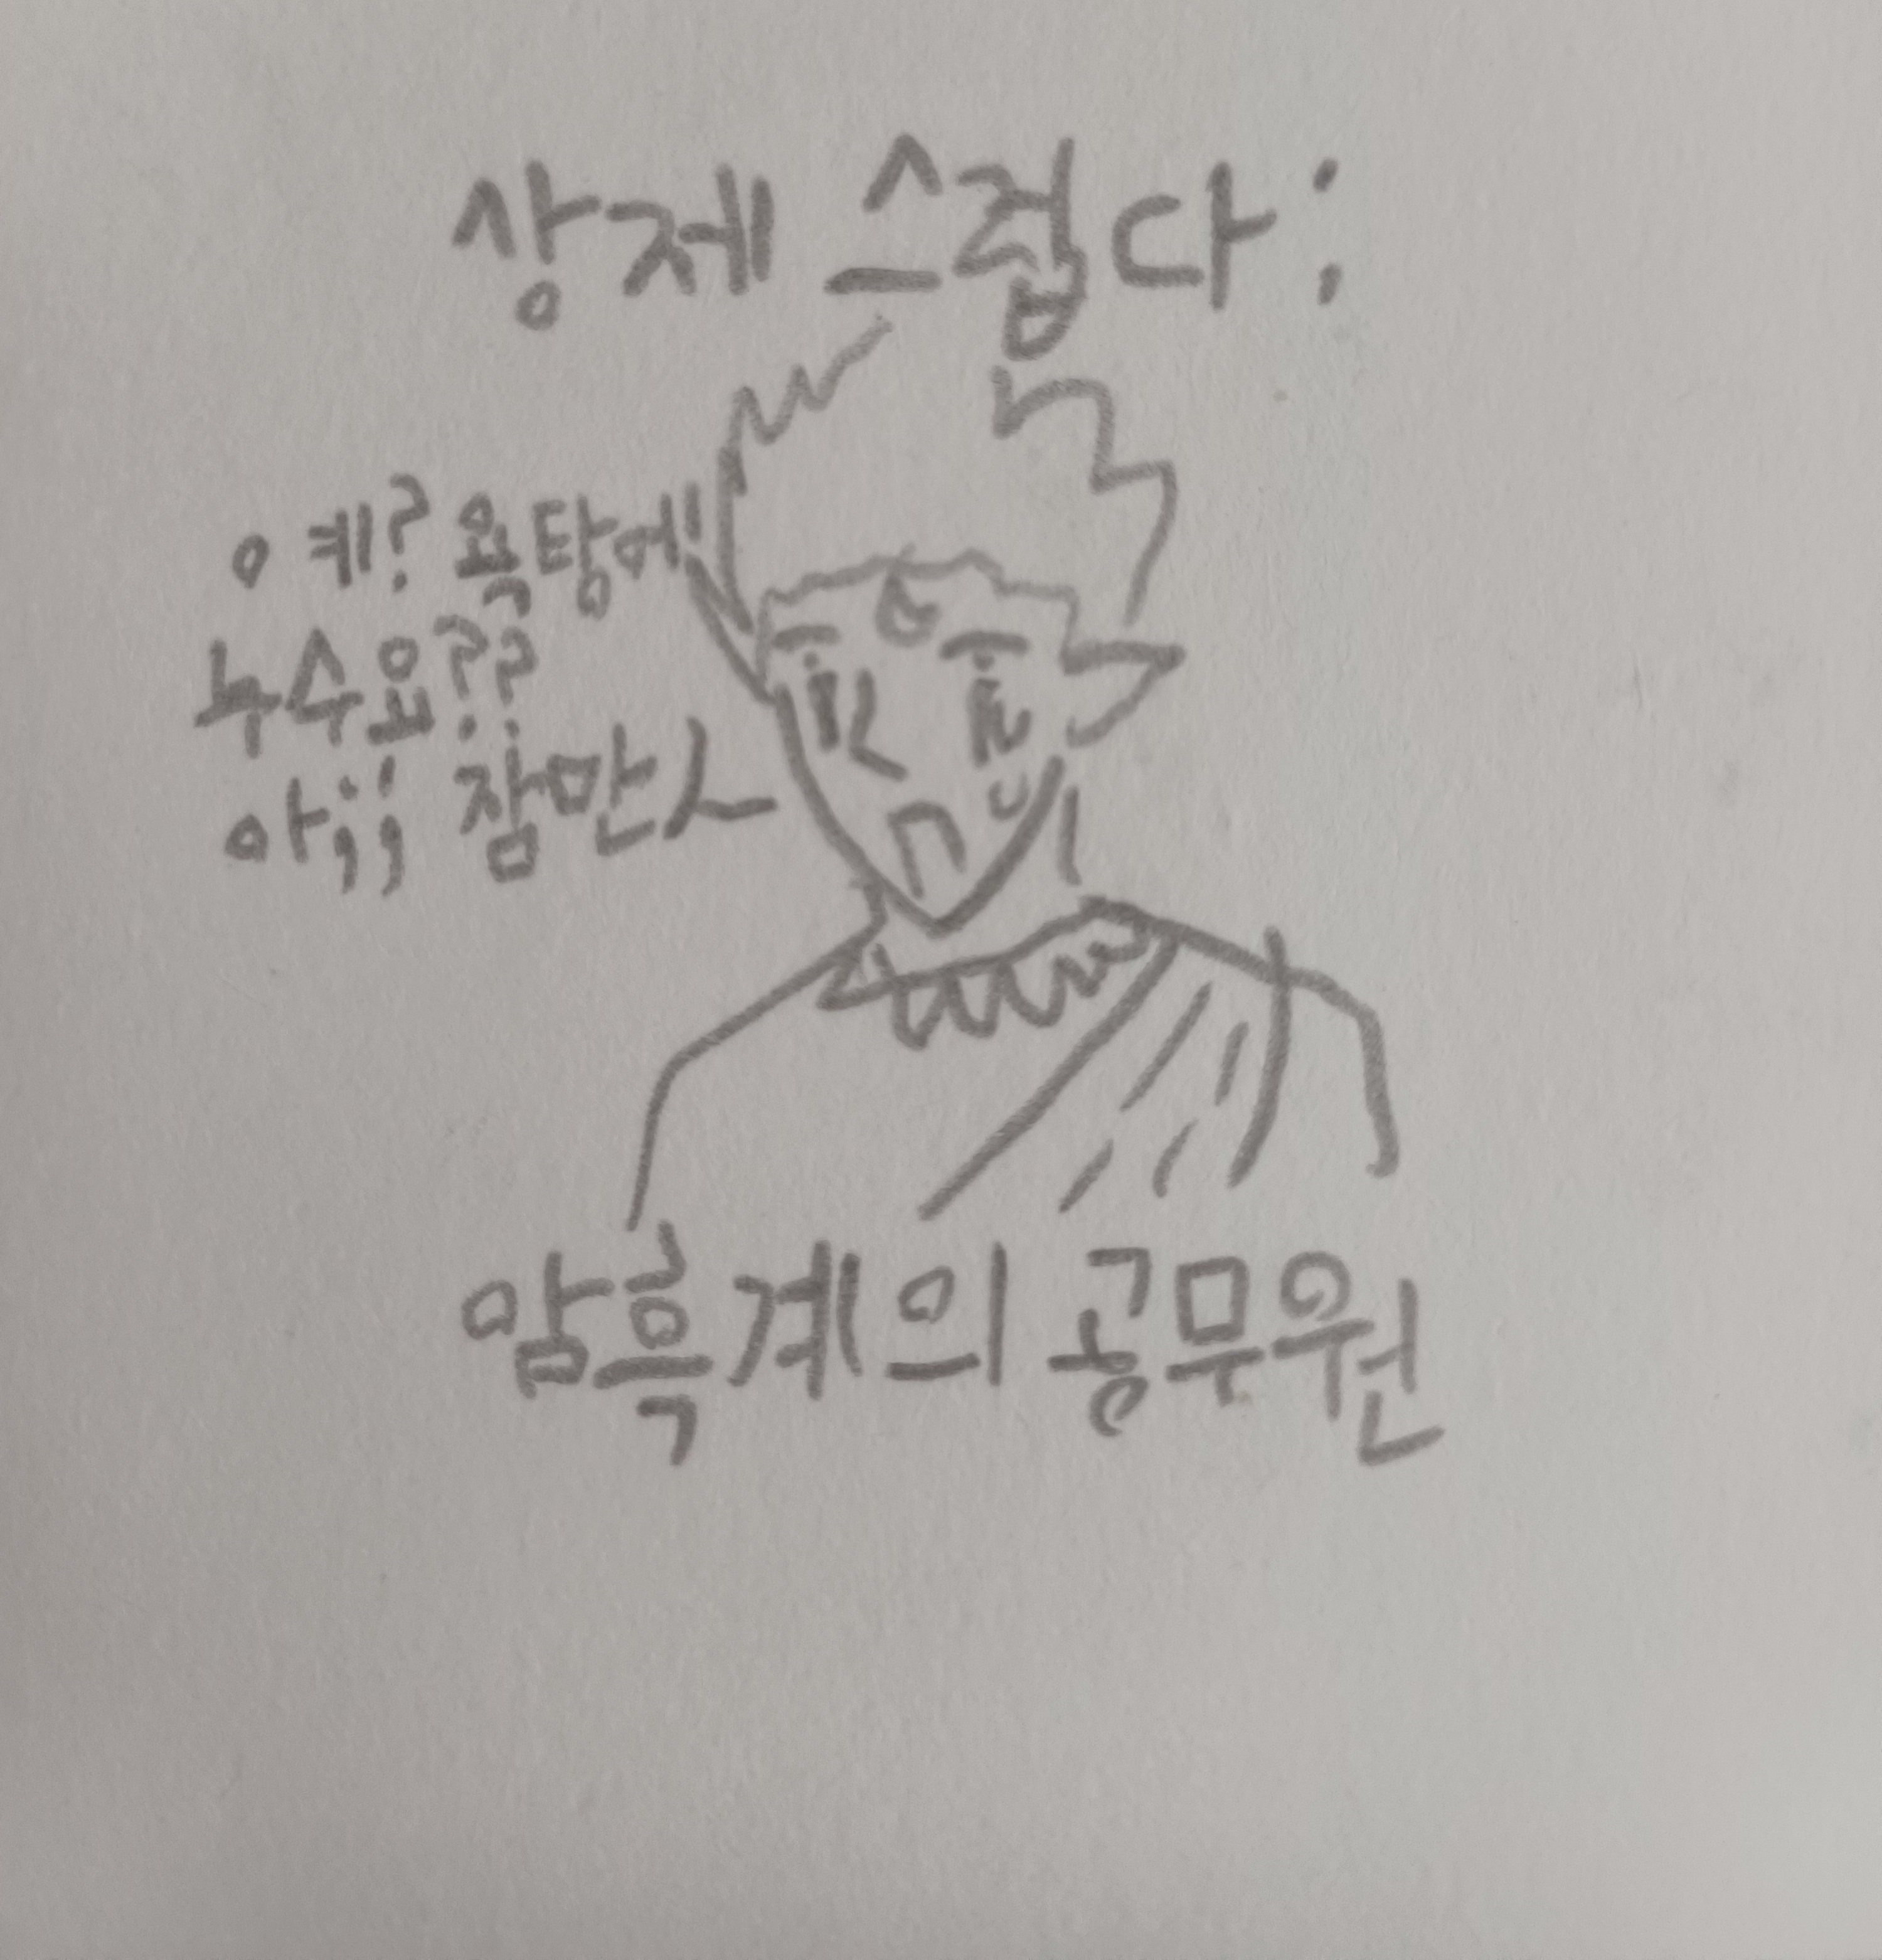 상제 스럽다:
예? 욕탕에
누수요??
아;; 잠만
암흑계의 공무원